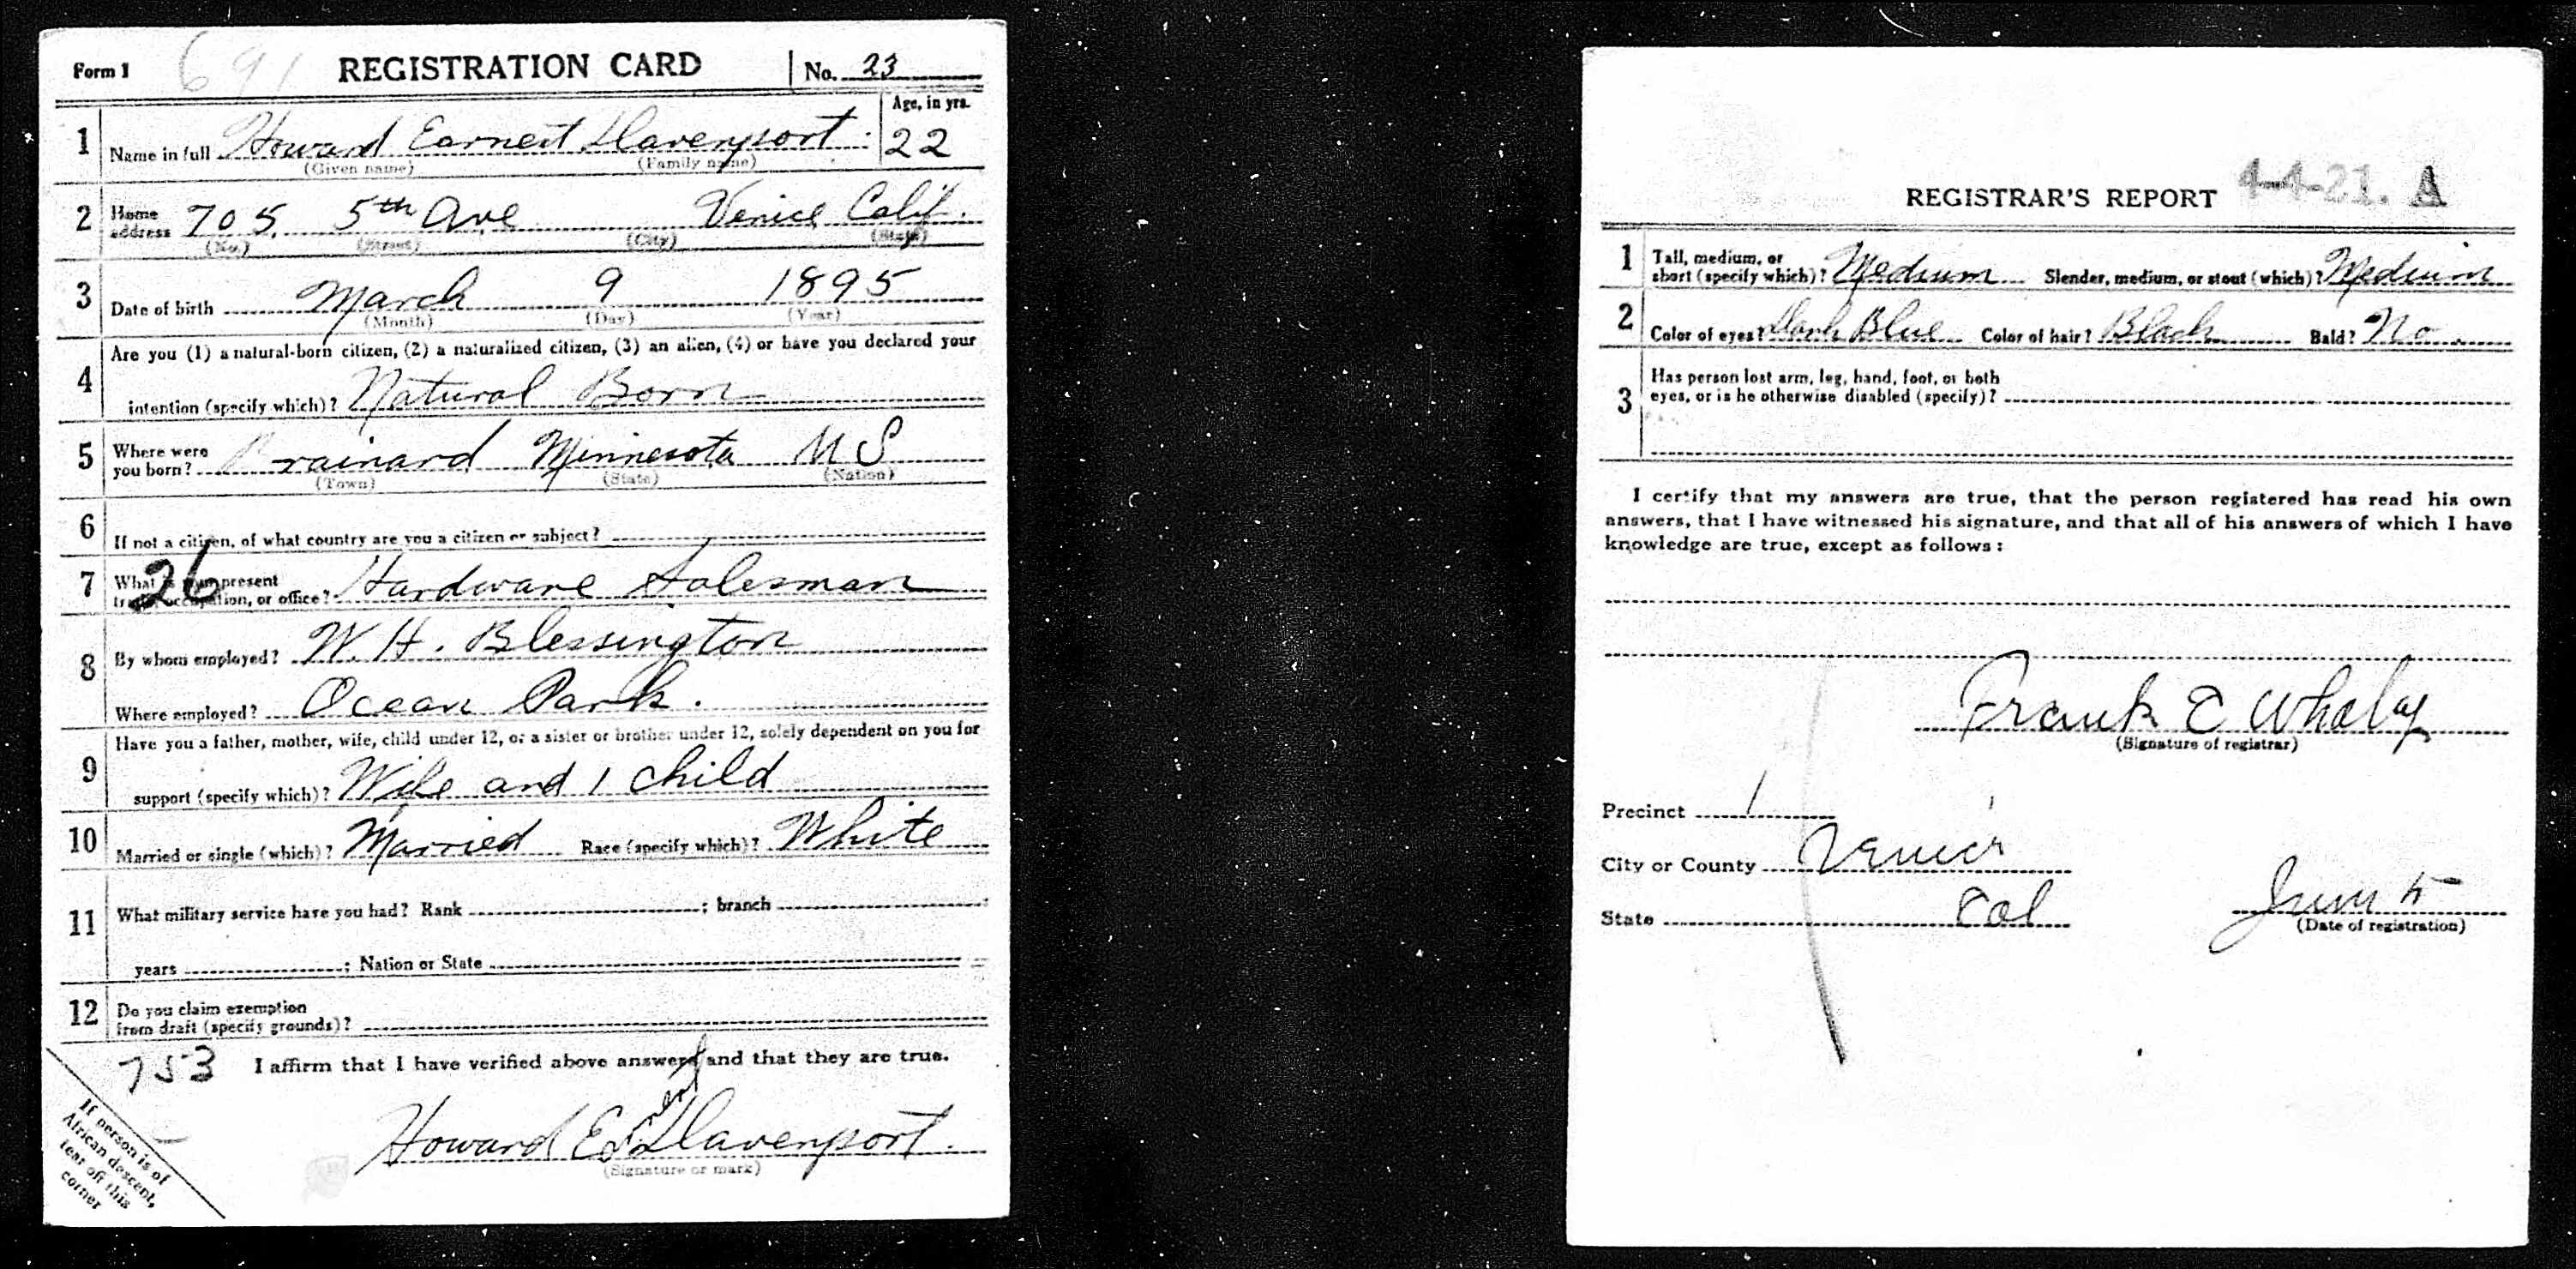 Form 1 691 REGISTRATION CARD No. 23
1 Name in full Howard Earnest Davenport. Age, in yrs. 22
(Given name) (Family name)
2 Home address 705 5th Ave Venice Calif.
(No.) (Street) (City) (State)
3 Date of birth March 9 1895
(Month) (Day) (Year)
Are you (1) a natural-born citizen, (2) a naturalized citizen, (3) an alien, (4) or have you declared your
4 intention (specify which)? Natural Born
5 Where were you born? Brainard Minnesota U S
(Town) (State) (Nation)
6 If not a citizen, of what country are you a citizen or subject?
7 What is your present trade, occupation, or office? Hardware Salesman
26
8 By whom employed? W. H. Blessington
Where employed? Ocean Park.
Have you a father, mother, wife, child under 12, or a sister or brother under 12, solely dependent on you for
9 support (specify which)? Wife and 1 child
10 Married or single (which)? Married Race (specify which)? White
11 What military service have you had? Rank ; branch
years ; Nation or State
12 Do you claim exemption
from draft (specify grounds)?
753 I affirm that I have verified above answers and that they are true.
Howard Earnest Davenport.
(Signature or mark)
If person is of
African descent,
tear off this
corner
REGISTRAR'S REPORT 4-4-21. A
1 Tall, medium, or
short (specify which)? Medium Slender, medium, or stout (which)? Medium
2 Color of eyes? Dark Blue Color of hair? Black Bald? No
Has person lost arm, leg, hand, foot, or both
3 eyes, or is he otherwise disabled (specify)?
I certify that my answers are true, that the person registered has read his own
answers, that I have witnessed his signature, and that all of his answers of which I have
knowledge are true, except as follows:
Frank E Whaley
(Signature of registrar)
Precinct 1
City or County Venice
State Cal June 5
(Date of registration)